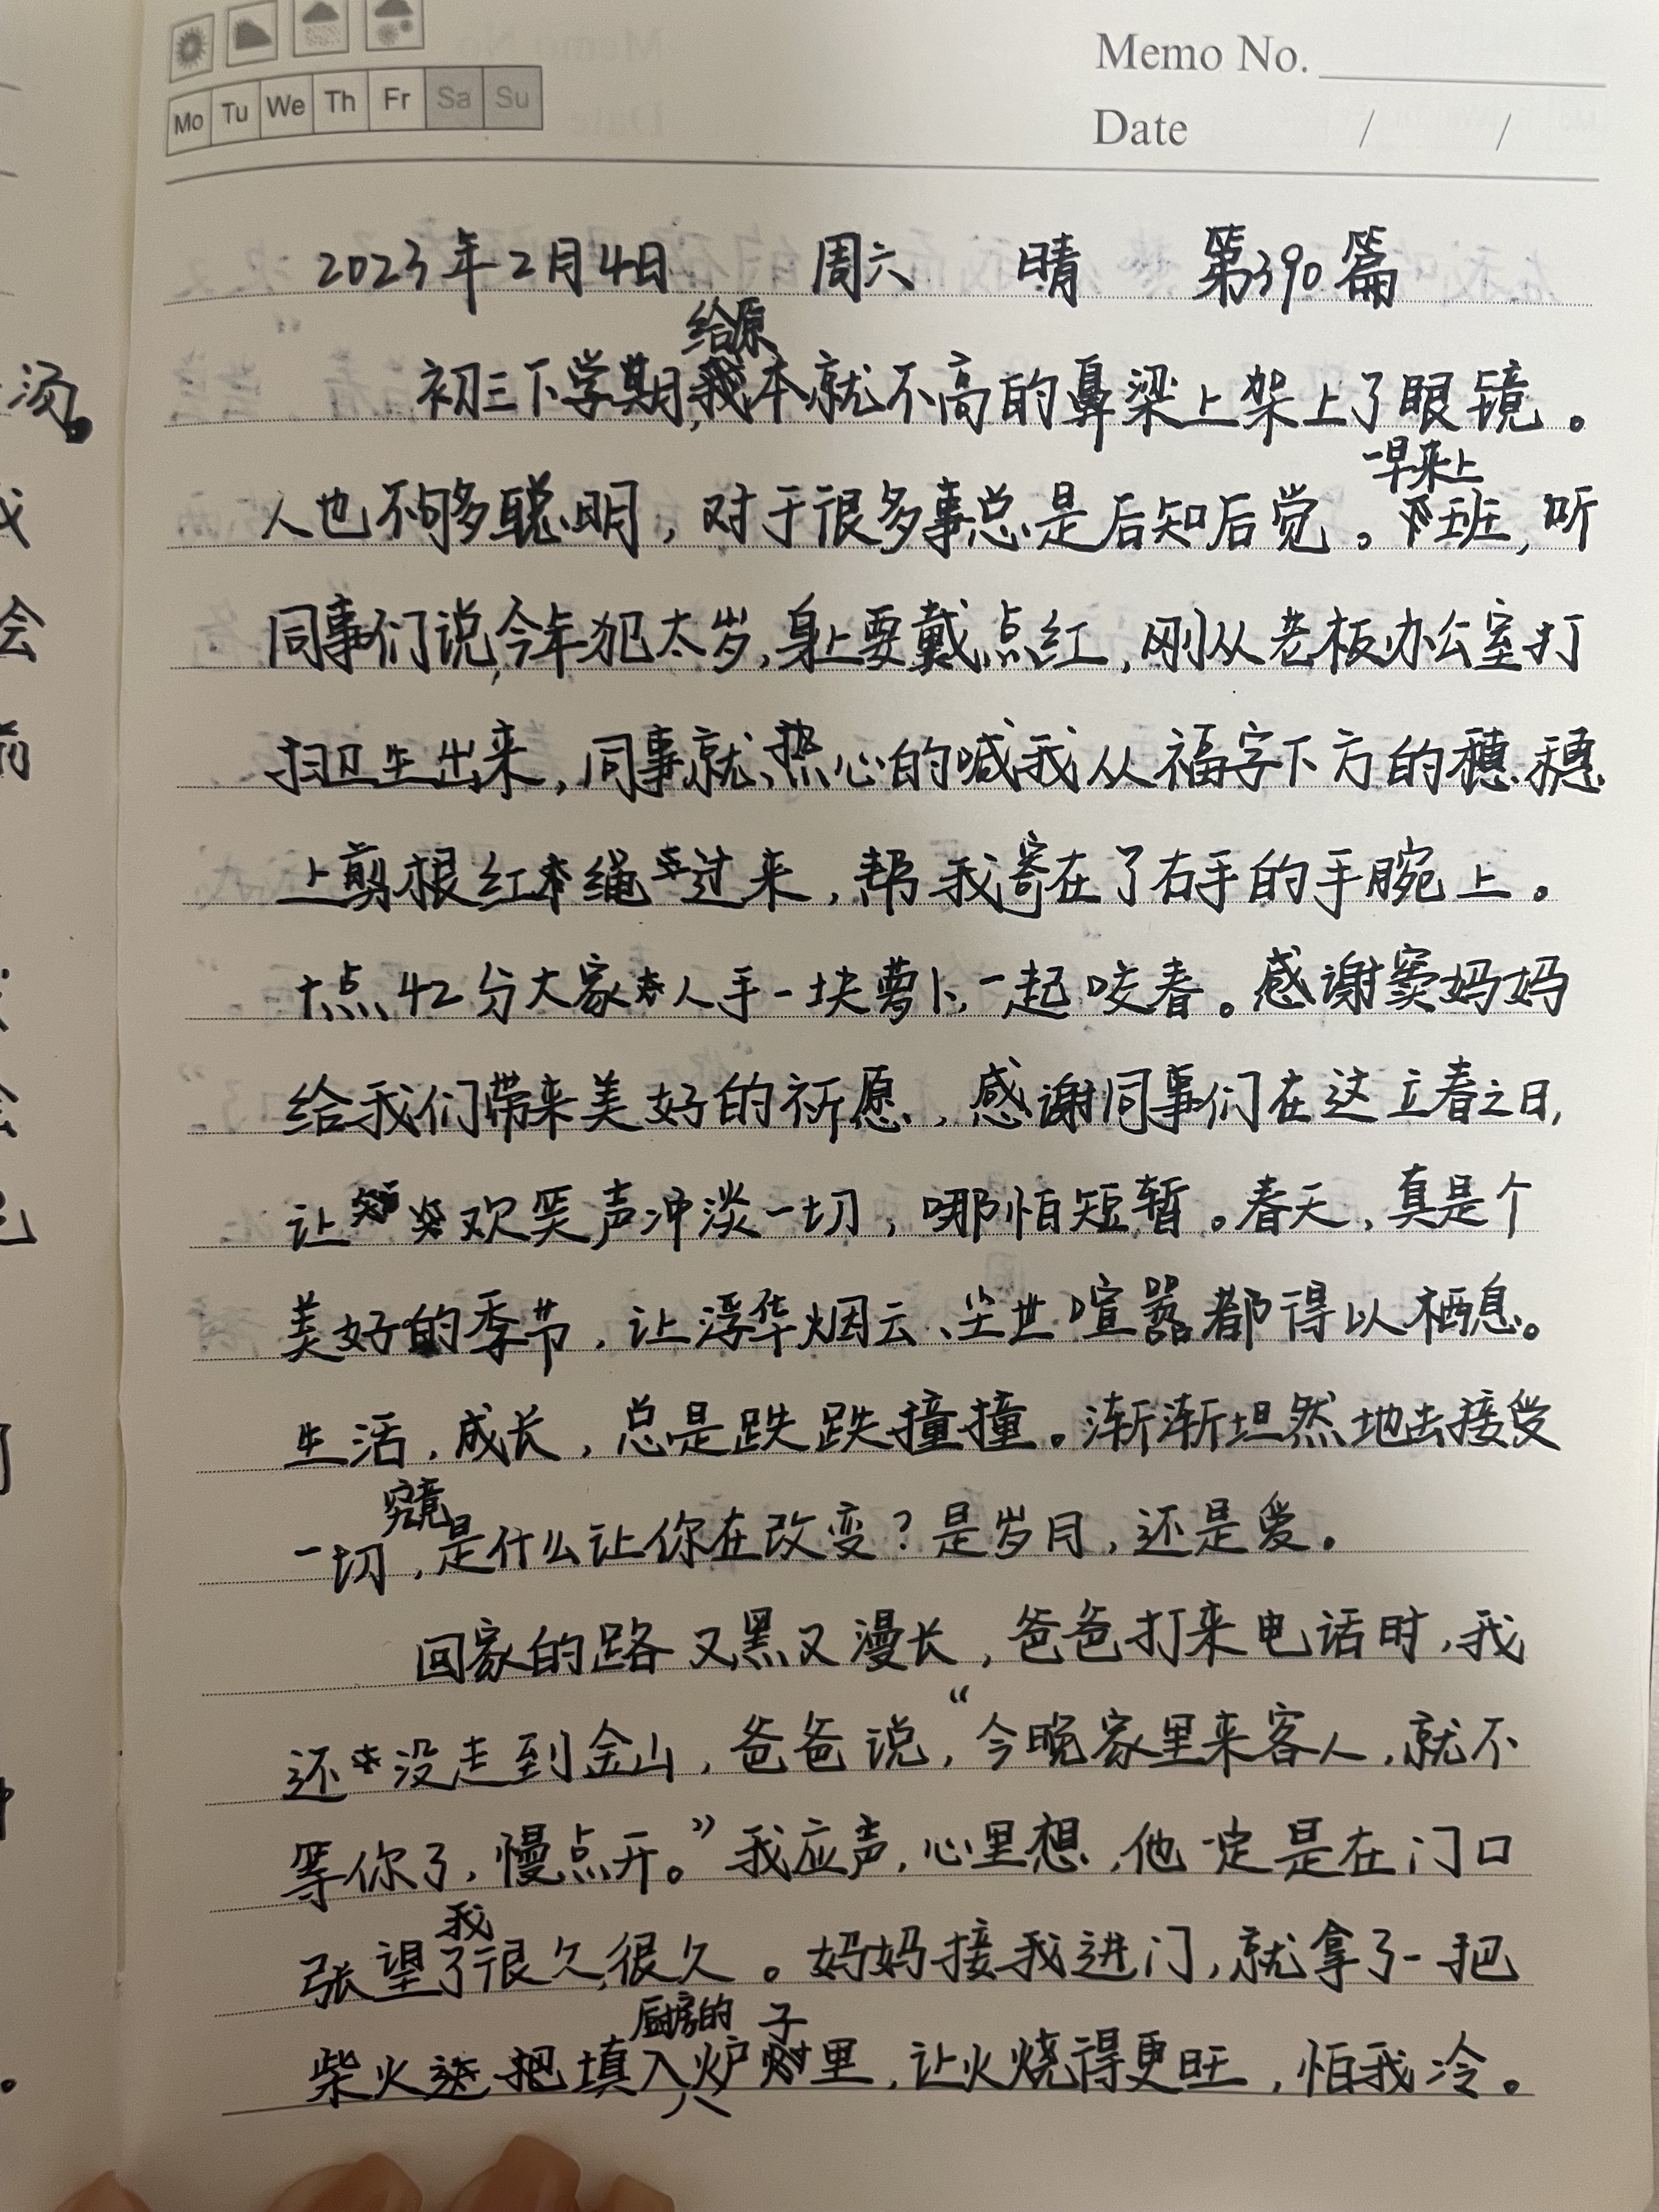 Mo Tu We Th Fr Sa Su
Memo No.
Date / /
2023年2月4日 周六 晴 第390篇
初三下学期,给原本就不高的鼻梁上架上了眼镜。
人也不够聪明，对于很多事总是后知后觉。一早来上班,听
同事们说,今年犯太岁,身上要戴点红,刚从老板办公室打
扫卫生出来,同事就热心的喊我从福字下方的穗穗
上剪根红绳过来,帮我寄在了右手的手腕上。
十点42分大家人手一块萝卜,一起咬春。感谢窦妈妈
给我们带来美好的祈愿,感谢同事们在这立春之日,
让欢笑声冲淡一切,哪怕短暂。春天,真是个
美好的季节,让浮华烟云、尘世喧嚣都得以栖息。
生活,成长,总是跌跌撞撞。渐渐坦然地去接受
一切,究竟是什么让你在改变?是岁月,还是爱。
回家的路又黑又漫长,爸爸打来电话时,我
还没走到金山,爸爸说,“今晚家里来客人,就不
等你了,慢点开。”我应声,心里想,他一定是在门口
张望了我很久,很久。妈妈接我进门,就拿了一把
柴火把填入厨房的炉子里,让火烧得更旺,怕我冷。
汤。
我
会
前
会